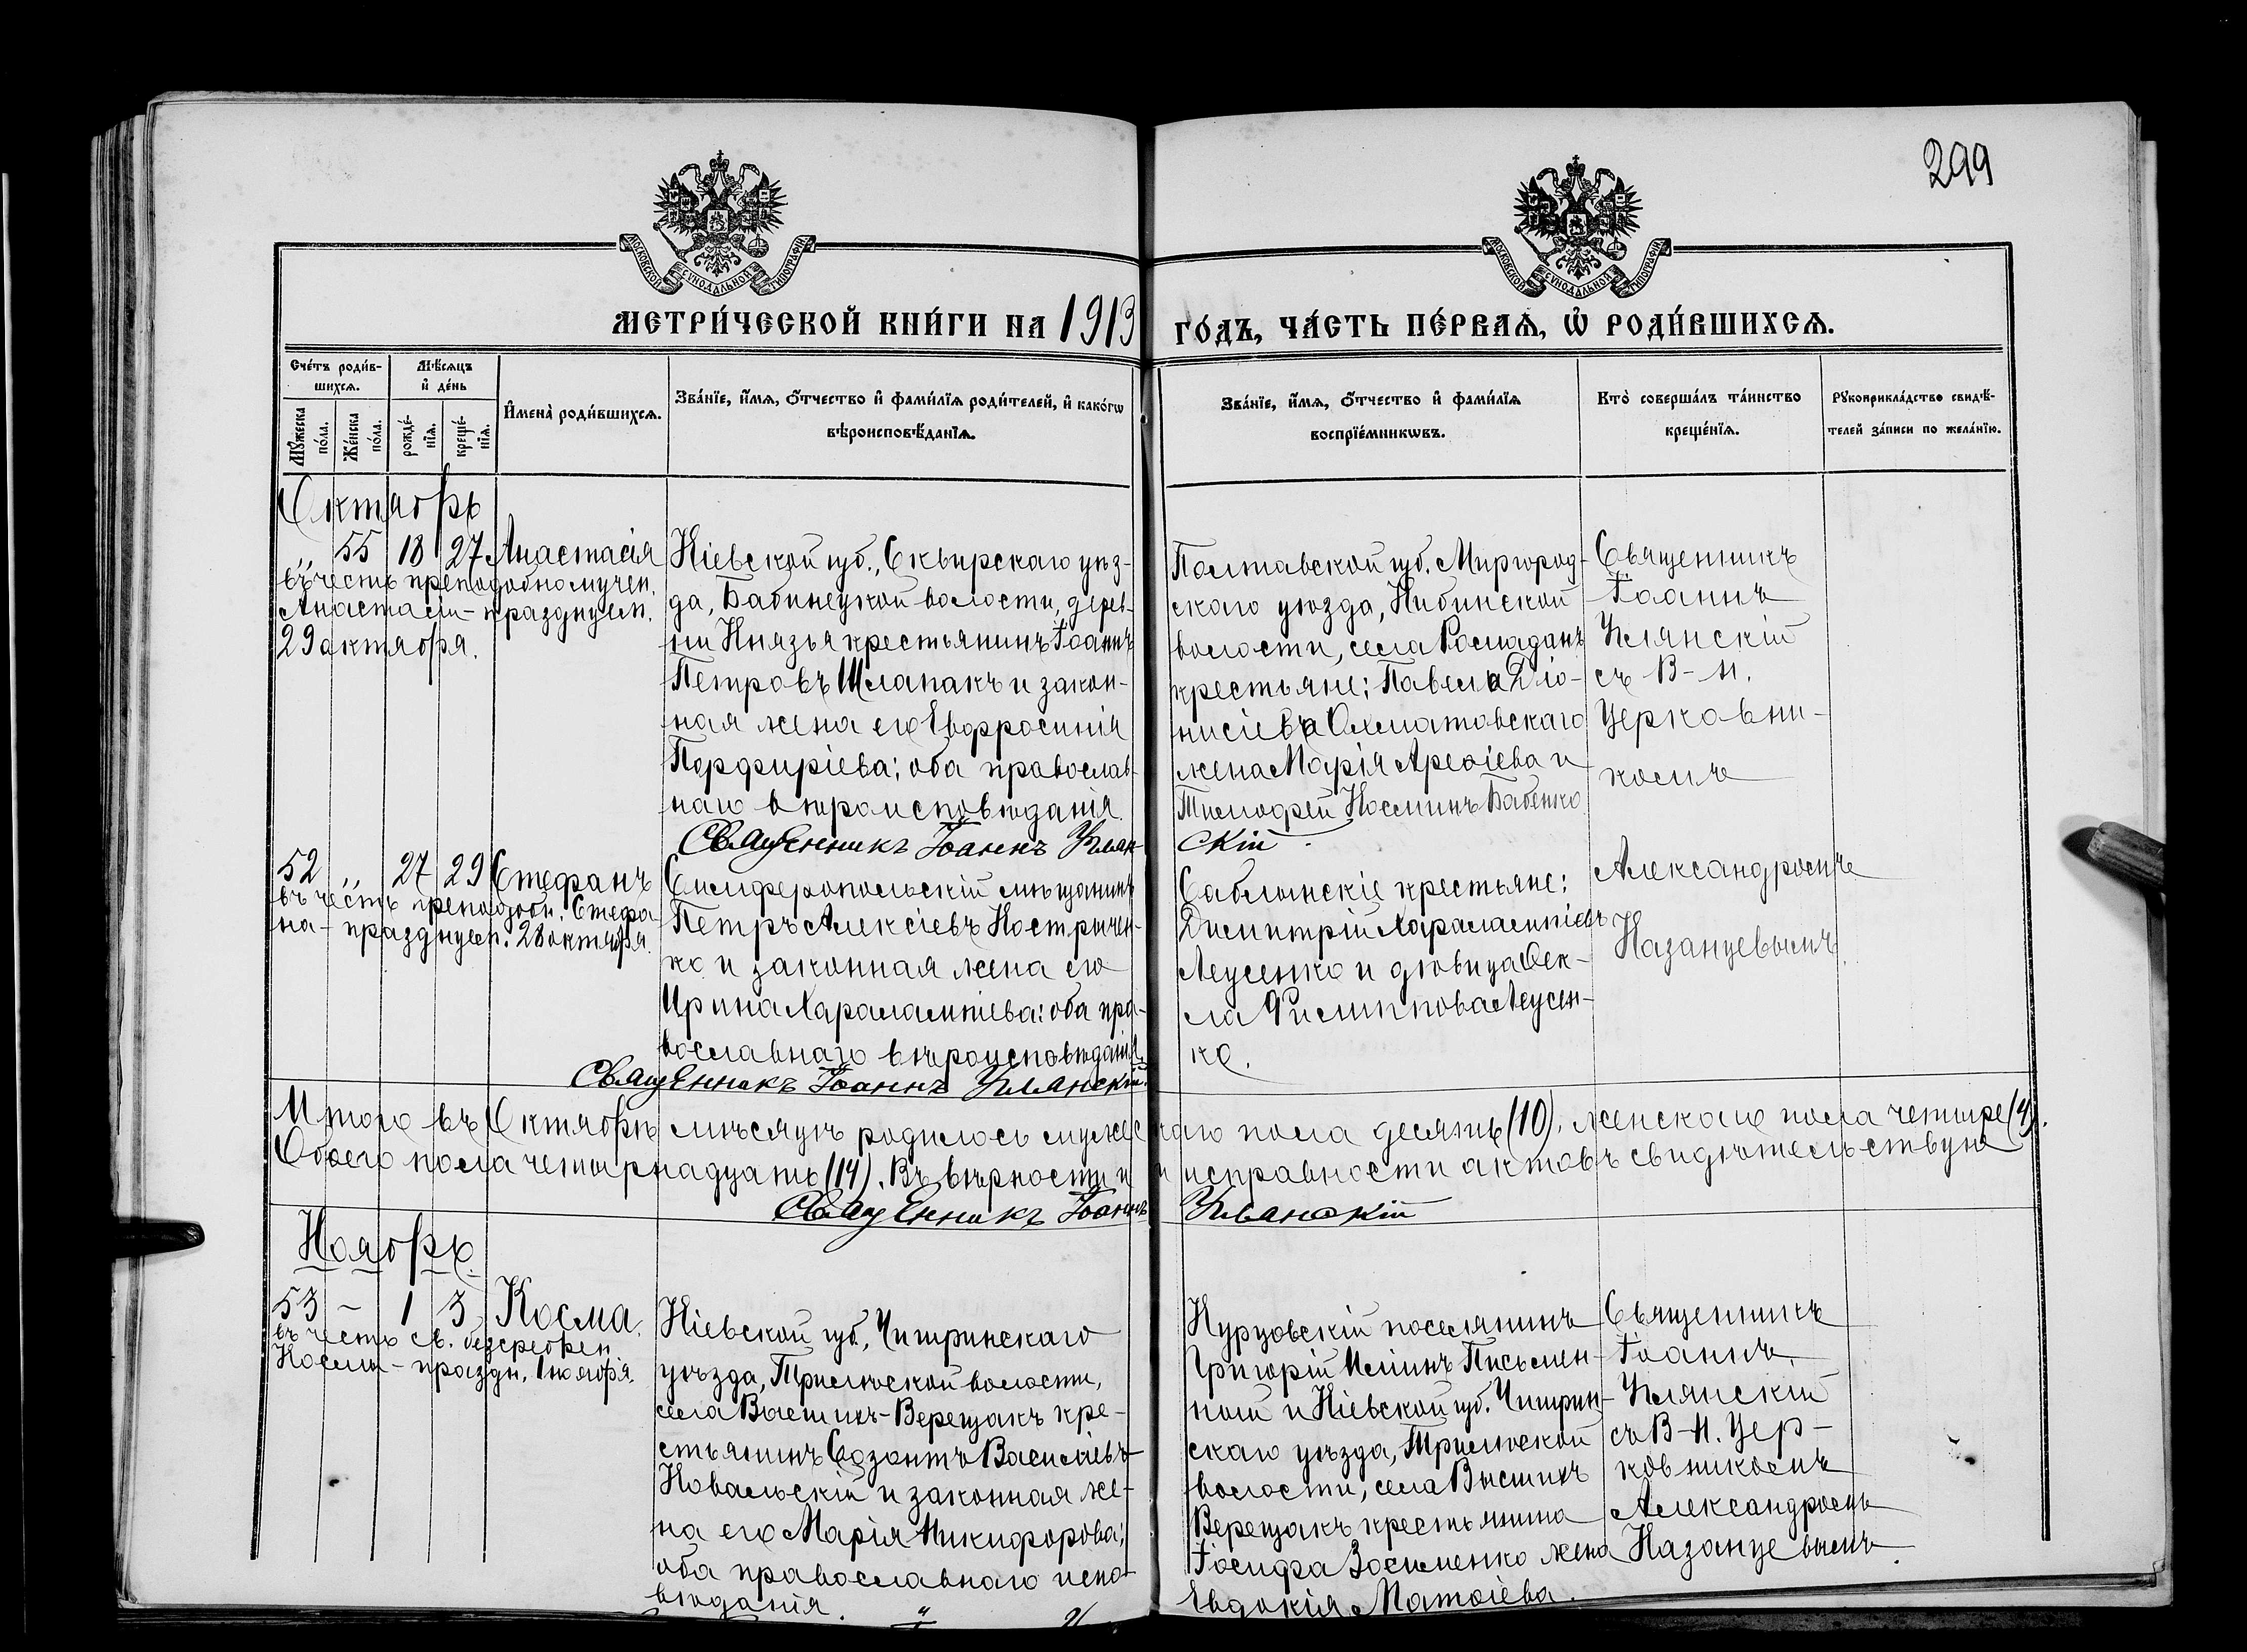 299
МОСКОВСКОЙ СѴНОДАЛЬНОЙ ТИПОГРАФІИ
МОСКОВСКОЙ СѴНОДАЛЬНОЙ ТИПОГРАФІИ
МЕТРИ́ЧЕСКОЙ КНИ́ГИ НА 1913 ГО́ДЪ, ЧА́СТЬ ПЕ́РВАѦ, Ѡ҆ РОДИ́ВШИХСѦ.
Сче́тъ роди́в-
шихсѧ.
Мꙋ́жеска по́ла.
Же́нска по́ла.
Мѣ́сѧцъ
и҆ де́нь
рожде́-
нїѧ.
креще́-
нїѧ.
И҆мена̀ роди́вшихсѧ.
Зва́нїе, и҆́мѧ, ѻ҆́тчество и҆ фами́лїѧ роди́телей, и҆ како́гѡ
вѣроисповѣ́данїѧ.
Зва́нїе, и҆́мѧ, ѻ҆́тчество и҆ фами́лїѧ
воспрїе́мникѡвъ.
Кто̀ соверша́лъ та́инство
креще́нїѧ.
Рꙋкоприкла́дство свидѣ́-
телей за́писи по жела́нїю.
Октябрь
„ 55 18 27 Анастасія
въ честь преподобномучен.
Анастасіи - празднуем.
29 октября.
Кіевской губ., Сквирскаго уѣз-
да, Бабинецкой волости, дерев-
ни Князья крестьянинъ Іоаннъ
Петровъ Шлапакъ и закон-
ная жена его Евфросинія
Порфиріева; оба православ-
наго вѣроисповѣданія.
Полтавской губ. Миргород-
скаго уѣзда, Кибинской
волости, села
крестьяне: Павела Діо-
нисіева Охматовскаго
жена Марія Арефіева и
Тимофей Косминъ Бабенко
Священникъ
Іоаннъ
Умянскій
съ В-И.
Церковни-
комъ
Александромъ
Казанцевымъ.
Священникъ Іоаннъ Умянскій.
52 „ 27 29 Стефанъ
въ честь преподобн. Стефа-
на - празднуем. 28 октября.
Симферопольскій мѣщанинъ
Петръ Алексіевъ Костричен-
ко и законная жена его
Ирина Харалампіева: оба пра-
вославнаго вѣроисповѣданія.
Саблынскіе крестьяне:
Димитрій Харалампіевъ
Леусенко и дѣвица Ѳек-
ла Филиппова Леусен-
ко.
Священникъ Іоаннъ Умянскій.
Итого въ Октябрѣ мѣсяцѣ родилось мужескаго пола десять (10), женскаго пола четыре (4).
Обоего пола четырнадцать (14). Въ вѣрности и исправности актовъ свидѣтельствуем
Священникъ Іоаннъ Умянскій
Ноябрь.
53 - 1 3 Косма.
въ честь св. безсребрен.
Космы - праздн. 1 ноября.
Кіевской губ., Чигринскаго
уѣзда, Трилѣской волости,
села Вышихъ-Верещакъ кре-
стьянинъ Созонтъ Василіевъ
Ковальскій и законная же-
на его Марія Никифорова;
оба православнаго испо-
вѣданія.
Курцовскій поселянинъ
Григорій Иліинъ Письмен-
ной и Кіевской губ. Чигрин-
скаго уѣзда, Трилѣской
волости, села Вышихъ
Верещакъ крестьянина
Іосифа Зосименко жена
Евдокія Матѳіева.
Священникъ
Іоаннъ
Умянскій
съ В-И. Цер-
ковникомъ
Александромъ
Казанцевымъ.